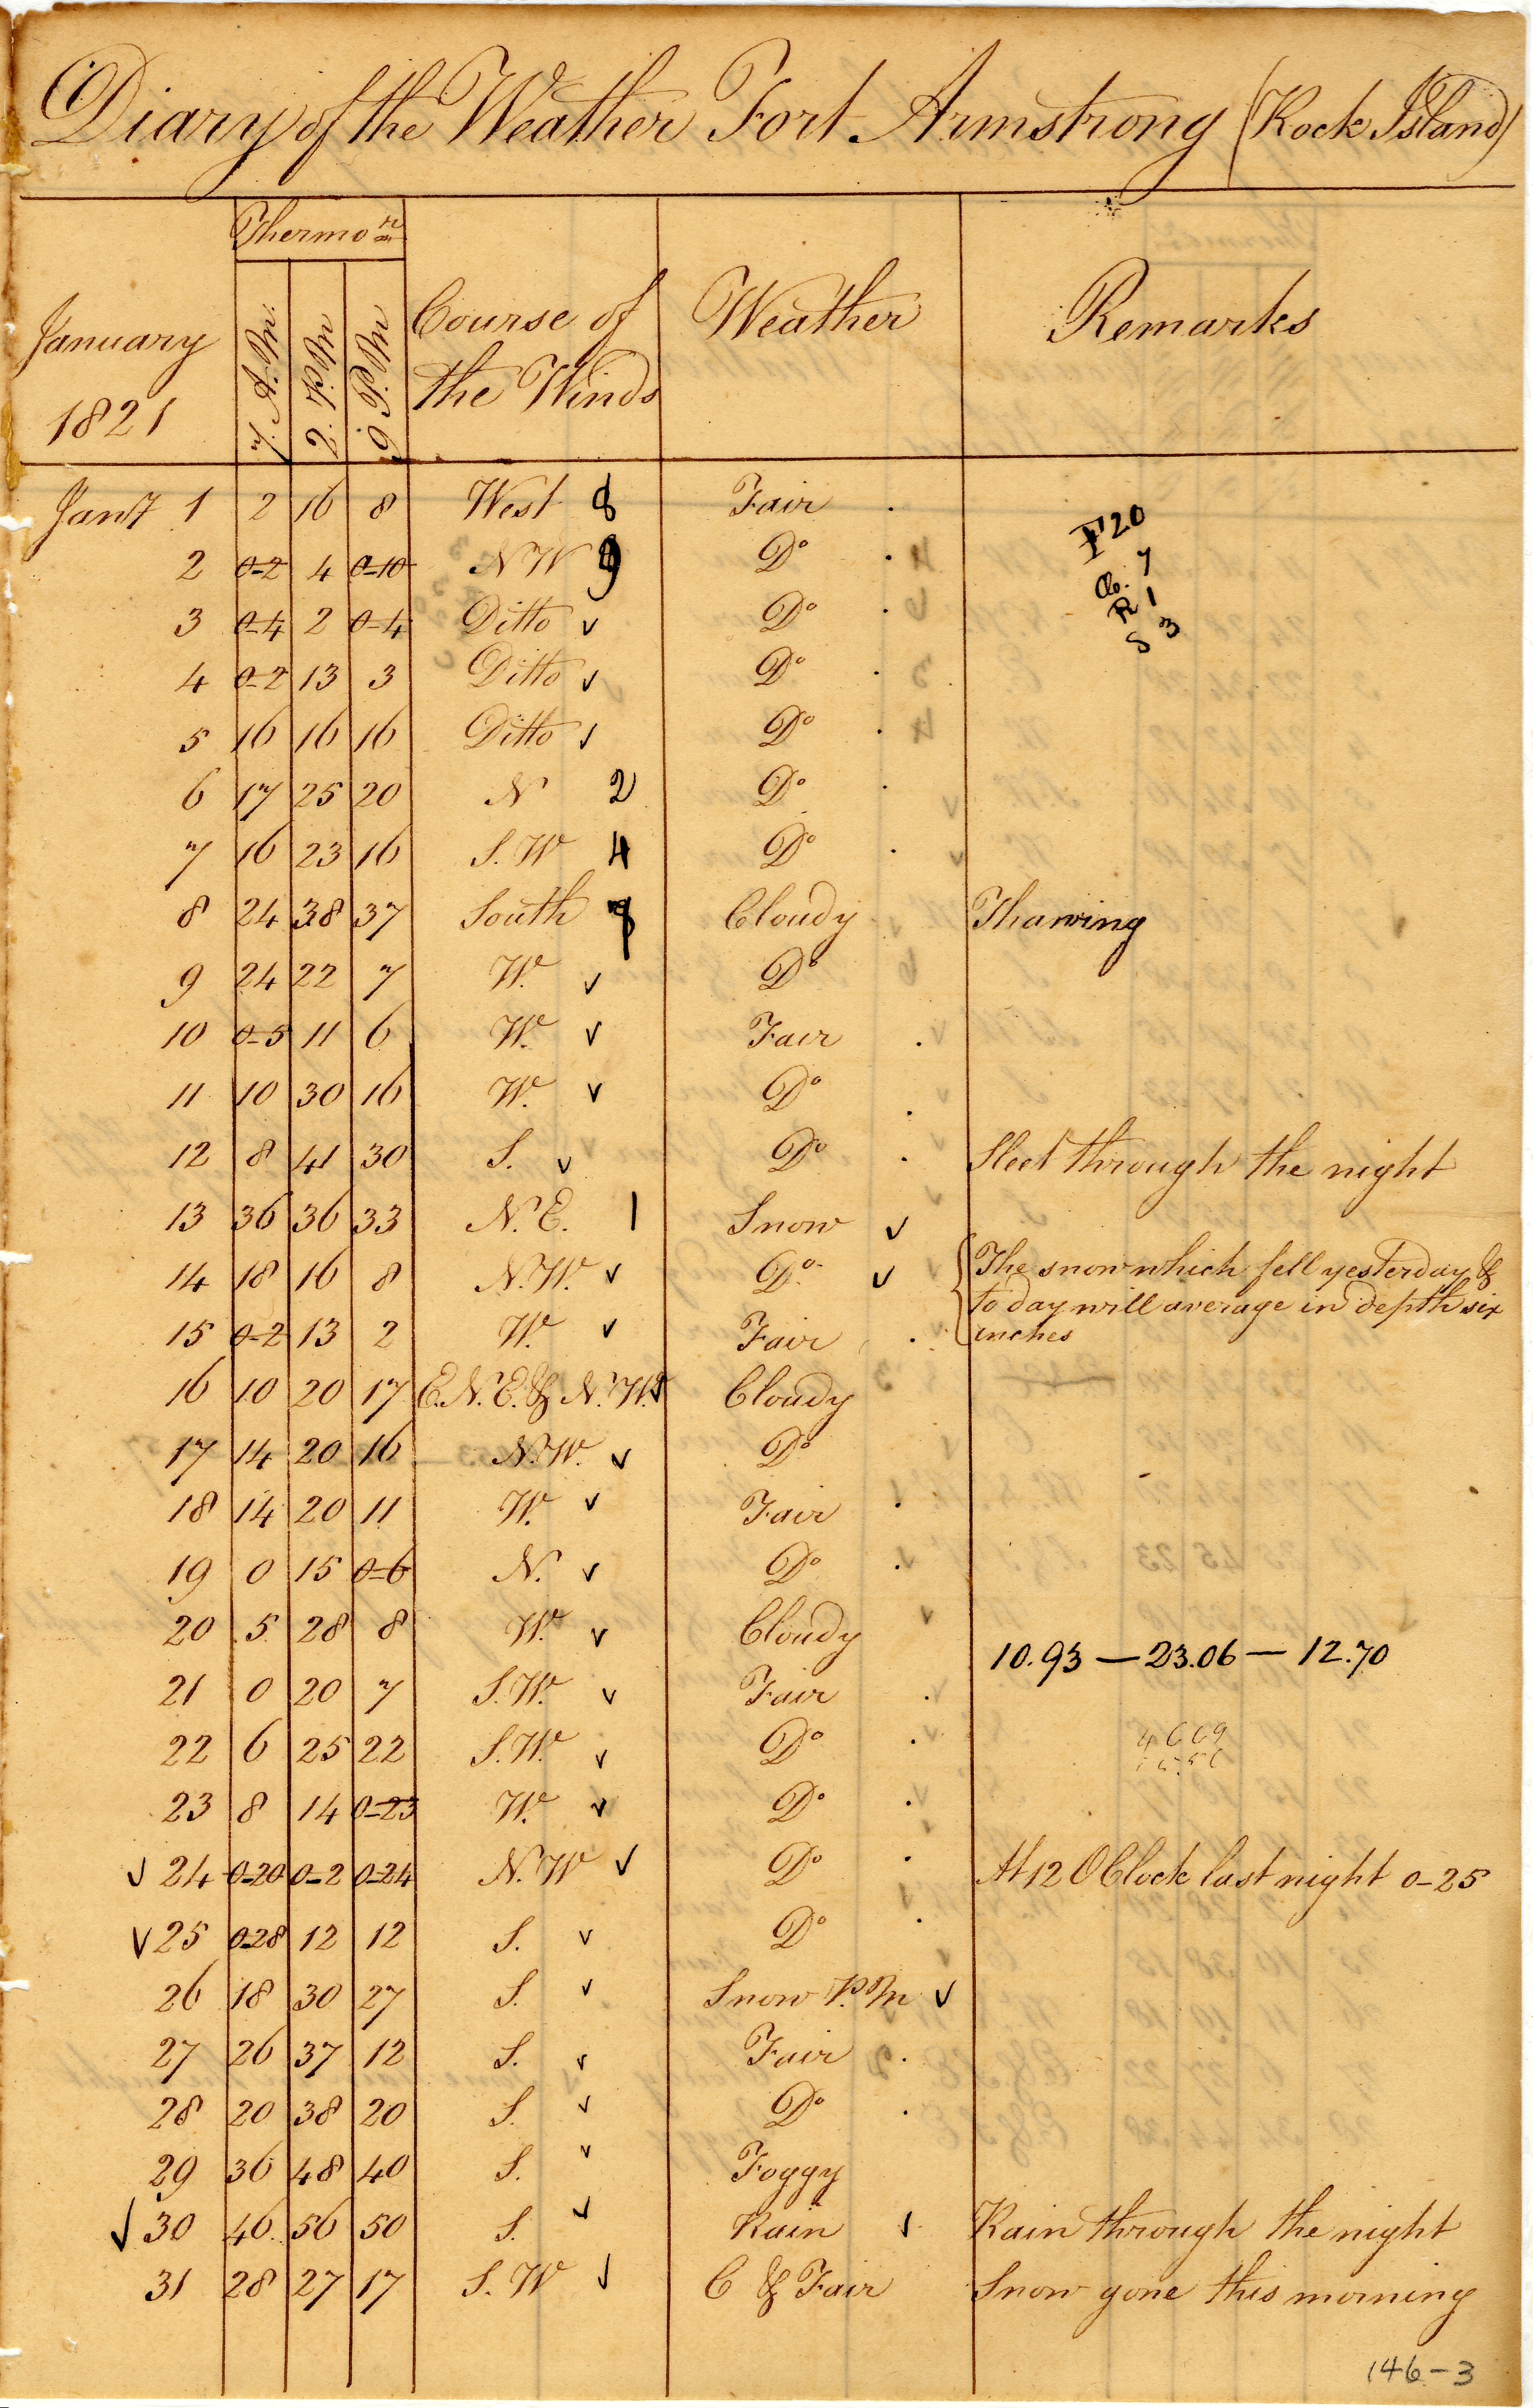 Diary of the Weather Fort Armstrong (Rock Island)
Thermo re
January 1821 7. A.M. 2. P.M 9 P.M Course of the Winds Weather Remarks
Jany 1 2 16 8 West 8 Fair .
2 0-2 4 0-10 N W 9 Do .
3 0-4 2 0-4 Ditto v Do .
4 0-2 13 3 Ditto v Do .
5 16 16 16 Ditto v Do .
F 20
Clo. 7
R 1
S 3
6 17 25 20 N 2 Do .
7 16 23 16 S. W 4 Do .
8 24 38 37 South 7 Cloudy Thawing
9 24 22 7 W. v Do
10 0-5 11 6 W. v Fair .
11 10 30 16 W. v Do .
12 8 41 30 S. v Do . Sleet through the night
13 36 36 33 N. E. 1 Snow v
14 18 16 8 N.W. v Do. v { The snow which fell yesterday &
to day will average in depth six
15 0-2 13 2 W. v Fair . inches
16 10 20 17 E.N.E. & N.W. v Cloudy
17 14 20 16 N.W. v Do
18 14 20 11 W. v Fair .
19 0 15 0-6 N. v Do .
20 5 28 8 W. v Cloudy
10.93 — 23.06 — 12.70
21 0 20 7 S.W. v Fair .
22 6 25 22 S.W. v Do .
4669
23 8 14 0-23 W. v Do .
v 24 0-20 0-2 0-24 N.W v Do . At 12 OClock last night 0-25
v 25 0-28 12 12 S. v Do .
26 18 30 27 S. v Snow P.M v
27 26 37 12 S. v Fair .
28 20 38 20 S. v Do .
29 36 48 40 S. v Foggy
v 30 46 56 50 S. v Rain v Rain through the night
31 28 27 17 S. W v C & Fair Snow gone this morning
146-3